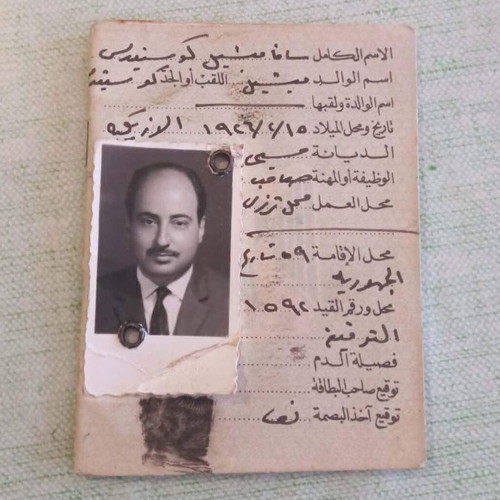 الاسم الكامل سافا ميشيل كوستنيدس
اسم الوالد ميشيل اللقب أو الجد كوستنيدس
اسم الوالدة ولقبها
تاريخ ومحل الميلاد ١٩٢٦/٢/١٥ الازبكية
الديانة مسيحى
الوظيفة أو المهنة صاحب
محل العمل محل ترزى
محل الإقامة ٥٩ شارع
الجمهورية
محل ورقم القيد ١٥٩٢
فصيلة الدم
توقيع صاحب البطاقة
توقيع آخذ البصمة